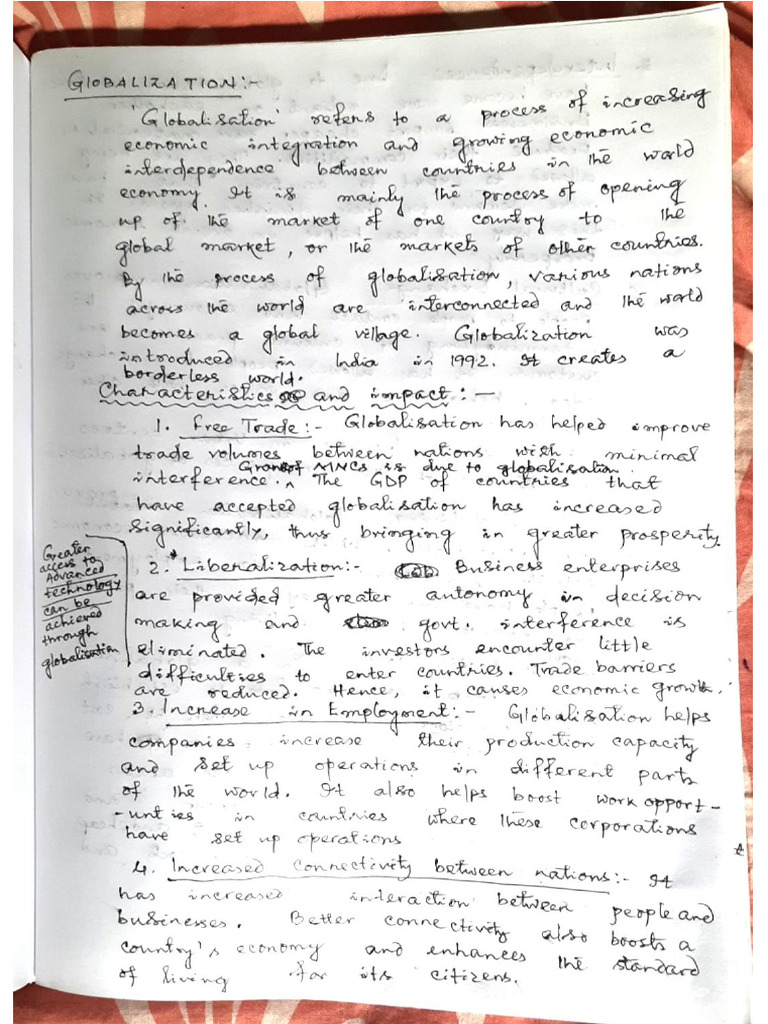 GLOBALIZATION:-
'Globalisation' refers to a process of increasing
economic integration and growing economic
interdependence between countries in the world
economy. It is mainly the process of opening
up of the market of one country to the
global market, or the markets of other countries.
By the process of globalisation, various nations
across the world are interconnected and the world
becomes a global village. Globalization was
introduced in India in 1992. It creates a
borderless world.
Characteristics and impact:-
1. Free Trade:- Globalisation has helped improve
trade volumes between nations with minimal
Growth of MNCs is due to globalisation.
interference. ^ The GDP of countries that
have accepted globalisation has increased
significantly, thus bringing in greater prosperity.
Greater
access to
Advanced
technology
can be
achieved
through
globalisation
2.* Liberalization:- Business enterprises
are provided greater autonomy in decision
making and govt. interference is
eliminated. The investors encounter little
difficulties to enter countries. Trade barriers
are reduced. Hence, it causes economic growth.
3. Increase in Employment:- Globalisation helps
companies increase their production capacity
and set up operations in different parts
of the world. It also helps boost work opport-
-unties in countries where these corporations
have set up operations
4. Increased connectivity between nations:- It
has increased interaction between people and
businesses. Better connectivity also boosts a
country's economy and enhances the standard
of living for its citizens.